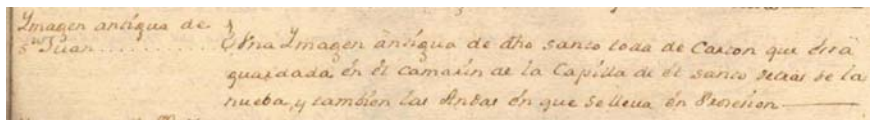 Ymagen antigua de
Sn Juan.......... Una Ymagen antigua de dho santo toda de Carton que está
guardada en él Camarin de la Capilla de él santo detras de la
nueba, y tambien las Andas én que se lleva én Prosesion